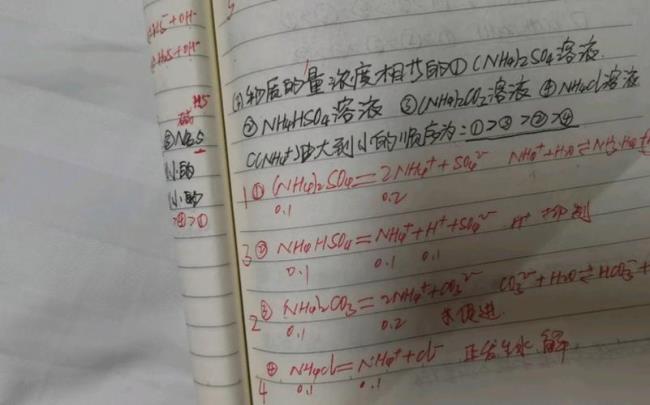 S²⁻+OH⁻
H₂S+OH⁻
HS⁻
③Na₂S
小的
小的
>④>①
(1)物质的量浓度相节的①(NH₄)₂SO₄溶液
②NH₄HSO₄溶液 ③(NH₄)₂CO₃溶液 ④NH₄Cl溶液
C(NH₄⁺)由大到小的顺序为:①>③>②>④
1 ① (NH₄)₂SO₄=2NH₄⁺+SO₄²⁻ NH₄⁺+H₂O⇌NH₃·H₂O+
0.1 0.2
3 ② NH₄HSO₄=NH₄⁺+H⁺+SO₄²⁻ H⁺抑制
0.1 0.1 0.1
2 ③ (NH₄)₂CO₃=2NH₄⁺+CO₃²⁻ CO₃²⁻+H₂O⇌HCO₃⁻+
0.1 0.2 促进
4 ④ NH₄Cl=NH₄⁺+Cl⁻ 正常水解
0.1 0.1